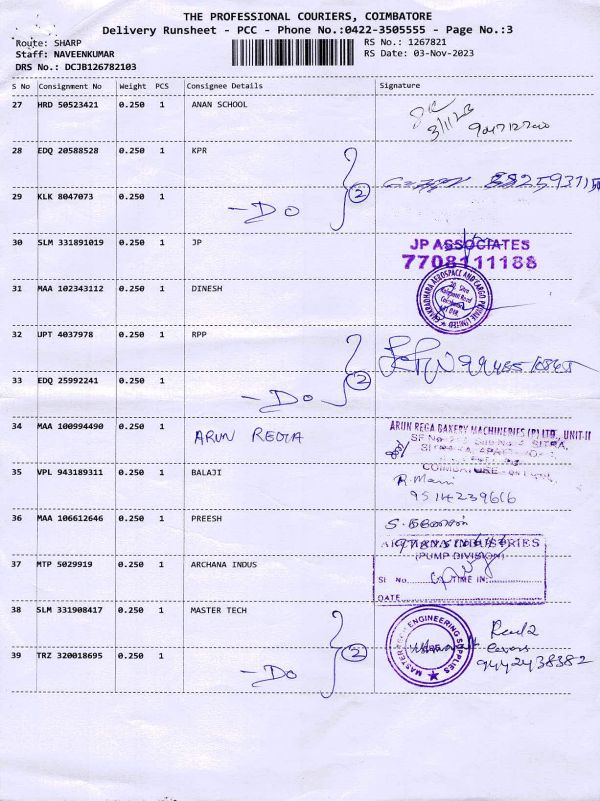 THE PROFESSIONAL COURIERS, COIMBATORE
Delivery Runsheet - PCC - Phone No.:0422-3505555 - Page No.:3
Route: SHARP RS No.: 1267821
Staff: NAVEENKUMAR RS Date: 03-Nov-2023
DRS No.: DCJB126782103
S No Consignment No Weight PCS Consignee Details Signature
27 HRD 50523421 0.250 1 ANAN SCHOOL
3/11/23
28 EDQ 20588528 0.250 1 KPR
29 KLK 8047073 0.250 1 - DO 2
30 SLM 331891019 0.250 1 JP JP ASSOCIATES
7708111188
31 MAA 102343112 0.250 1 DINESH
CHAKRADHARA AEROSPACE AND CARGO PRIVATE LIMITED
32 UPT 4037978 0.250 1 RPP
33 EDQ 25992241 0.250 1 - DO 2
34 MAA 100994490 0.250 1 ARUN REGA ARUN REGA BAKERY MACHINERIES (P) LTD., UNIT-II
35 VPL 943189311 0.250 1 BALAJI R. Mani
9514239616
36 MAA 106612646 0.250 1 PREESH
37 MTP 5029919 0.250 1 ARCHANA INDUS INDUSTRIES
(PUMP DIVISION)
Sl No. TIME IN:
DATE
38 SLM 331908417 0.250 1 MASTER TECH
ENGINEERING SUPPLIES
39 TRZ 320018695 0.250 1 - DO 2
9442438382